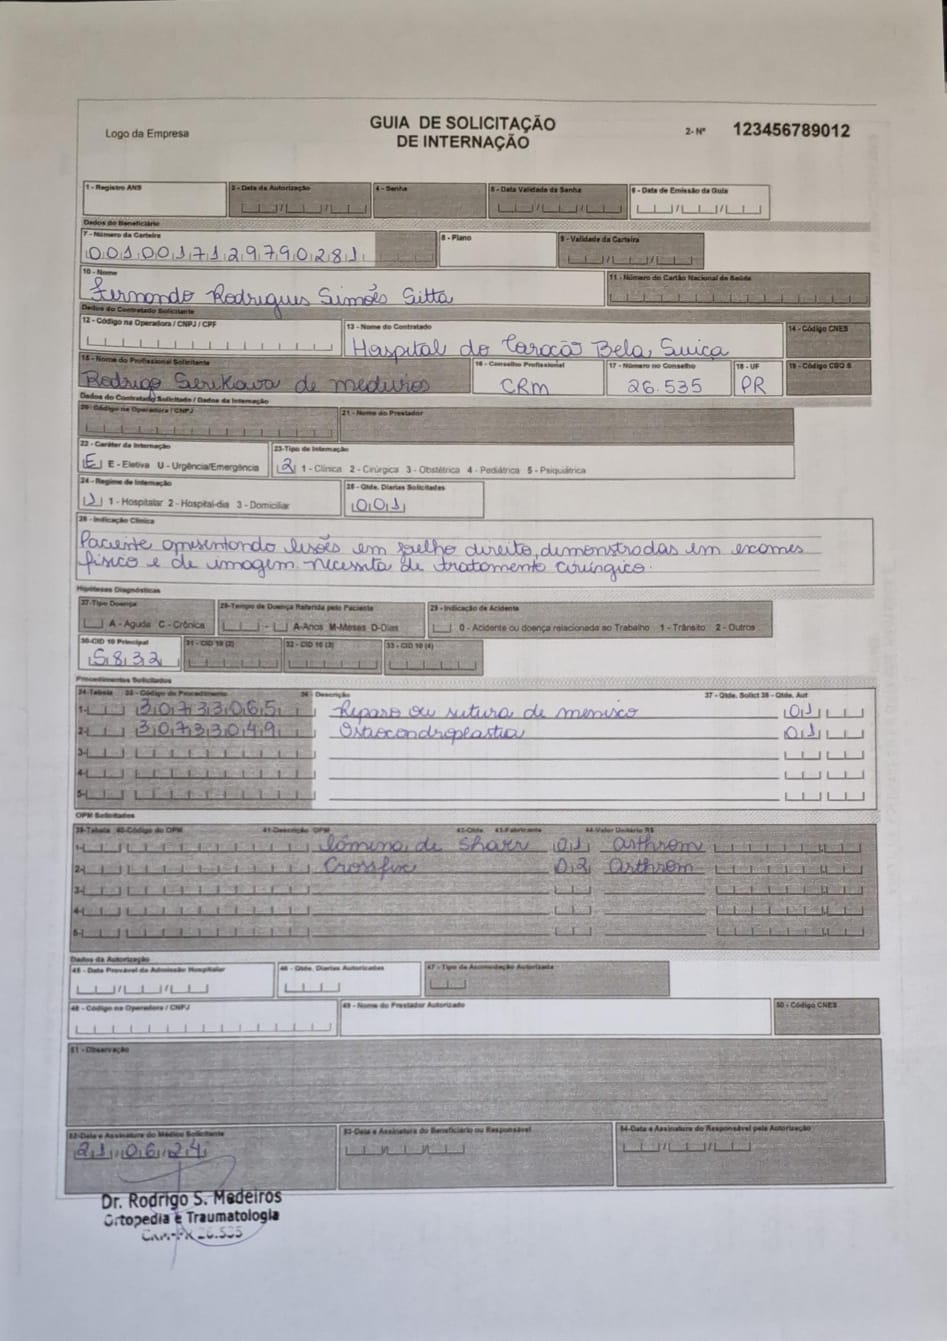 Logo da Empresa
GUIA DE SOLICITAÇÃO
DE INTERNAÇÃO
2- Nº 123456789012
1 - Registro ANS
3 - Data da Autorização
4 - Senha
5 - Data Validade da Senha
6 - Data de Emissão da Guia
Dados do Beneficiário
7 - Número da Carteira
0010017129790281
8 - Plano
9 - Validade da Carteira
10 - Nome
Fernando Rodrigues Simões Sitta
11 - Número do Cartão Nacional de Saúde
Dados do Contratado Solicitante
12 - Código na Operadora / CNPJ / CPF
13 - Nome do Contratado
Hospital do Coração Bela Suiça
14 - Código CNES
15 - Nome do Profissional Solicitante
Rodrigo Serikawa de medeiros
16 - Conselho Profissional
CRM
17 - Número no Conselho
26.535
18 - UF
PR
19 - Código CBO S
Dados do Contratado Solicitado / Dados da Internação
20 - Código na Operadora / CNPJ
21 - Nome do Prestador
22 - Caráter da Internação
E E - Eletiva U - Urgência/Emergência
23-Tipo de Internação
2 1 - Clínica 2 - Cirúrgica 3 - Obstétrica 4 - Pediátrica 5 - Psiquiátrica
24 - Regime de Internação
1 1 - Hospitalar 2 - Hospital-dia 3 - Domiciliar
25 - Qtde. Diárias Solicitadas
001
26 - Indicação Clínica
Paciente apresentando lesões em joelho direito, demonstradas em exames
físico e de imagem necessita de tratamento cirúrgico.
Hipóteses Diagnósticas
27-Tipo Doença
A - Aguda C - Crônica
28-Tempo de Doença Referida pelo Paciente
- A-Anos M-Meses D-Dias
29 - Indicação de Acidente
0 - Acidente ou doença relacionada ao Trabalho 1 - Trânsito 2 - Outros
30-CID 10 Principal
S832
31 - CID 10 (2)
32 - CID 10 (3)
33 - CID 10 (4)
Procedimentos Solicitados
34-Tabela 35 - Código do Procedimento 36 - Descrição 37 - Qtde. Solict 38 - Qtde. Aut
1- 30733065 Reparo ou sutura de menisco 01
2- 30733049 Osteocondroplastia 01
3-
4-
5-
OPM Solicitados
39-Tabela 40-Código do OPM 41-Descrição OPM 42-Qtde. 43-Fabricante 44-Valor Unitário R$
1- Lâmina de Shaver 01 arthrom
2- Crossfire 02 arthrom
3-
4-
5-
Dados da Autorização
45 - Data Provável da Admissão Hospitalar
46 - Qtde. Diárias Autorizadas
47 - Tipo da Acomodação Autorizada
48 - Código na Operadora / CNPJ
49 - Nome do Prestador Autorizado
50 - Código CNES
51 - Observação
52-Data e Assinatura do Médico Solicitante
21/06/24
53-Data e Assinatura do Beneficiário ou Responsável
54-Data e Assinatura do Responsável pela Autorização
Dr. Rodrigo S. Medeiros
Ortopedia e Traumatologia
CRM-PR 26.535